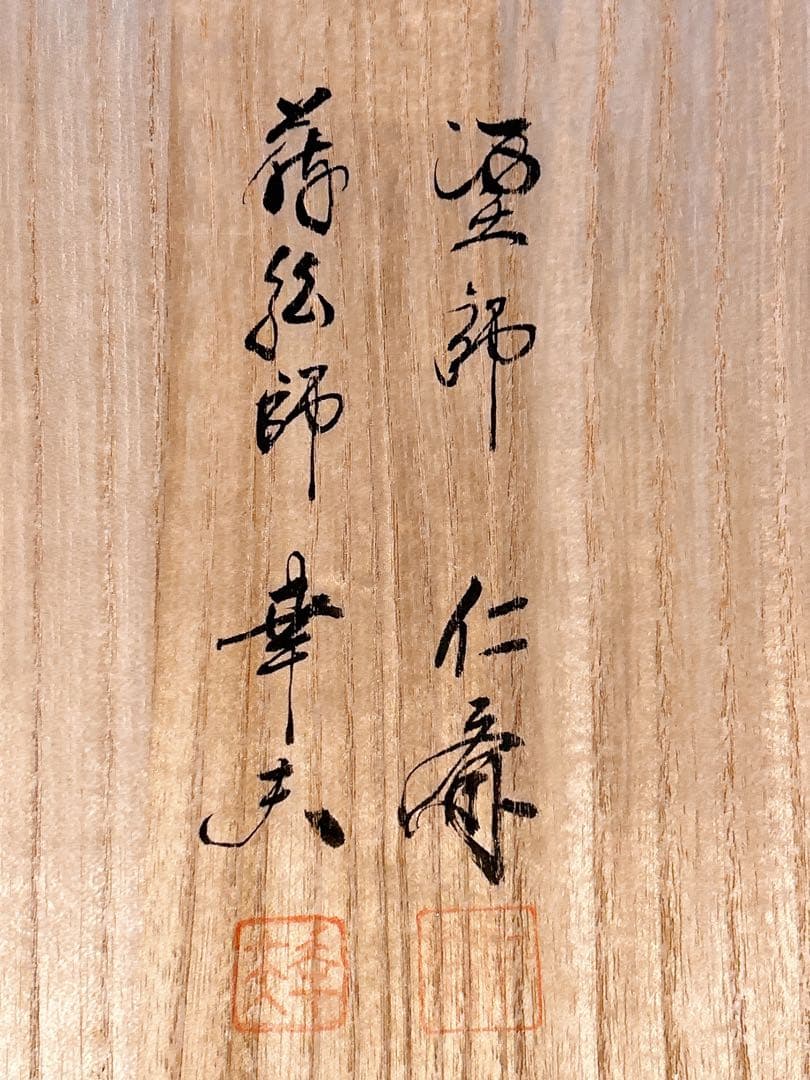 塗師 仁斎
蒔絵師 幸夫